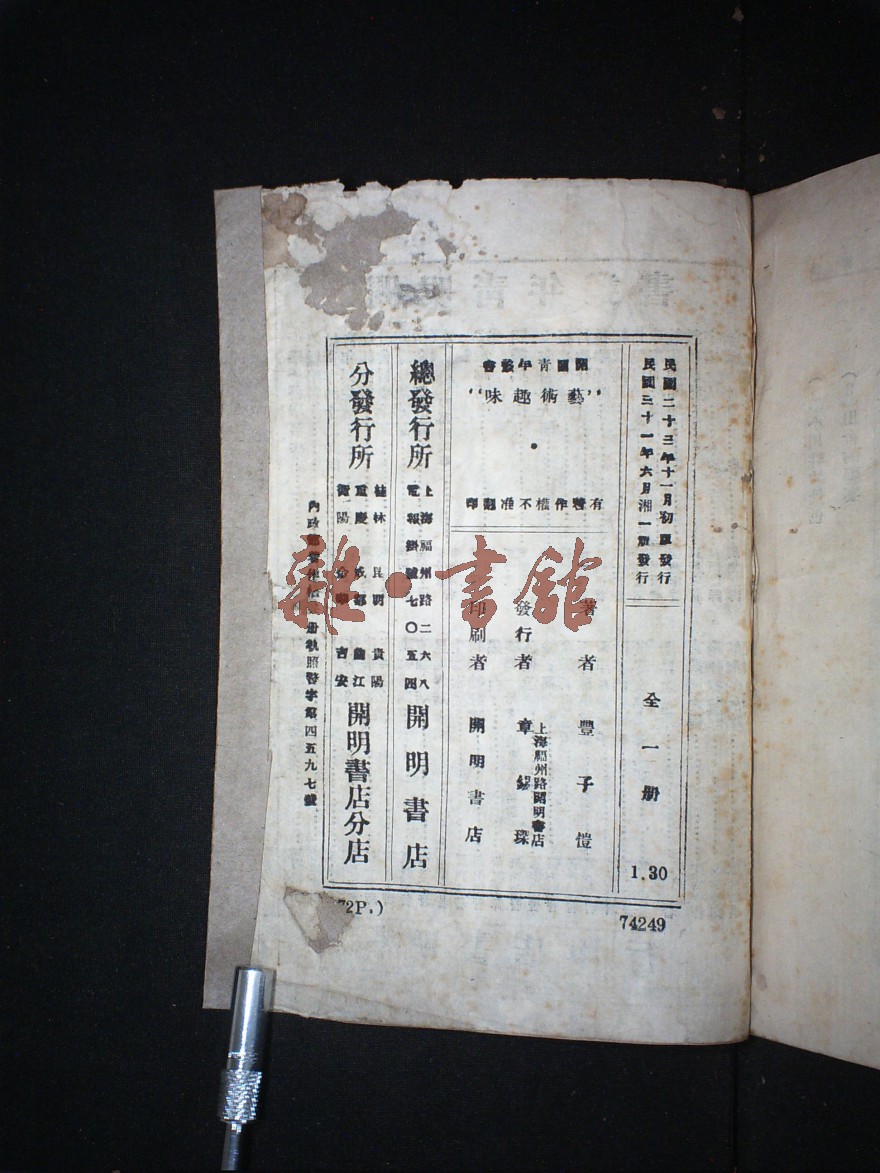 民國二十三年十一月初版發行
民國三十一年六月湘一版發行
全一册
1.30
開明青年叢書
"藝術趣味"
有著作權不准翻印
著者 豐子愷
發行者 章錫琛
上海福州路開明書店
印刷者 開明書店
總發行所
上海福州路二六八
電報掛號七〇五四
開明書店
分發行所
桂林 昆明 貴陽
重慶 成都
衡陽 吉安
開明書店分店
號四五九七號
72P.)
74249
雜·書館